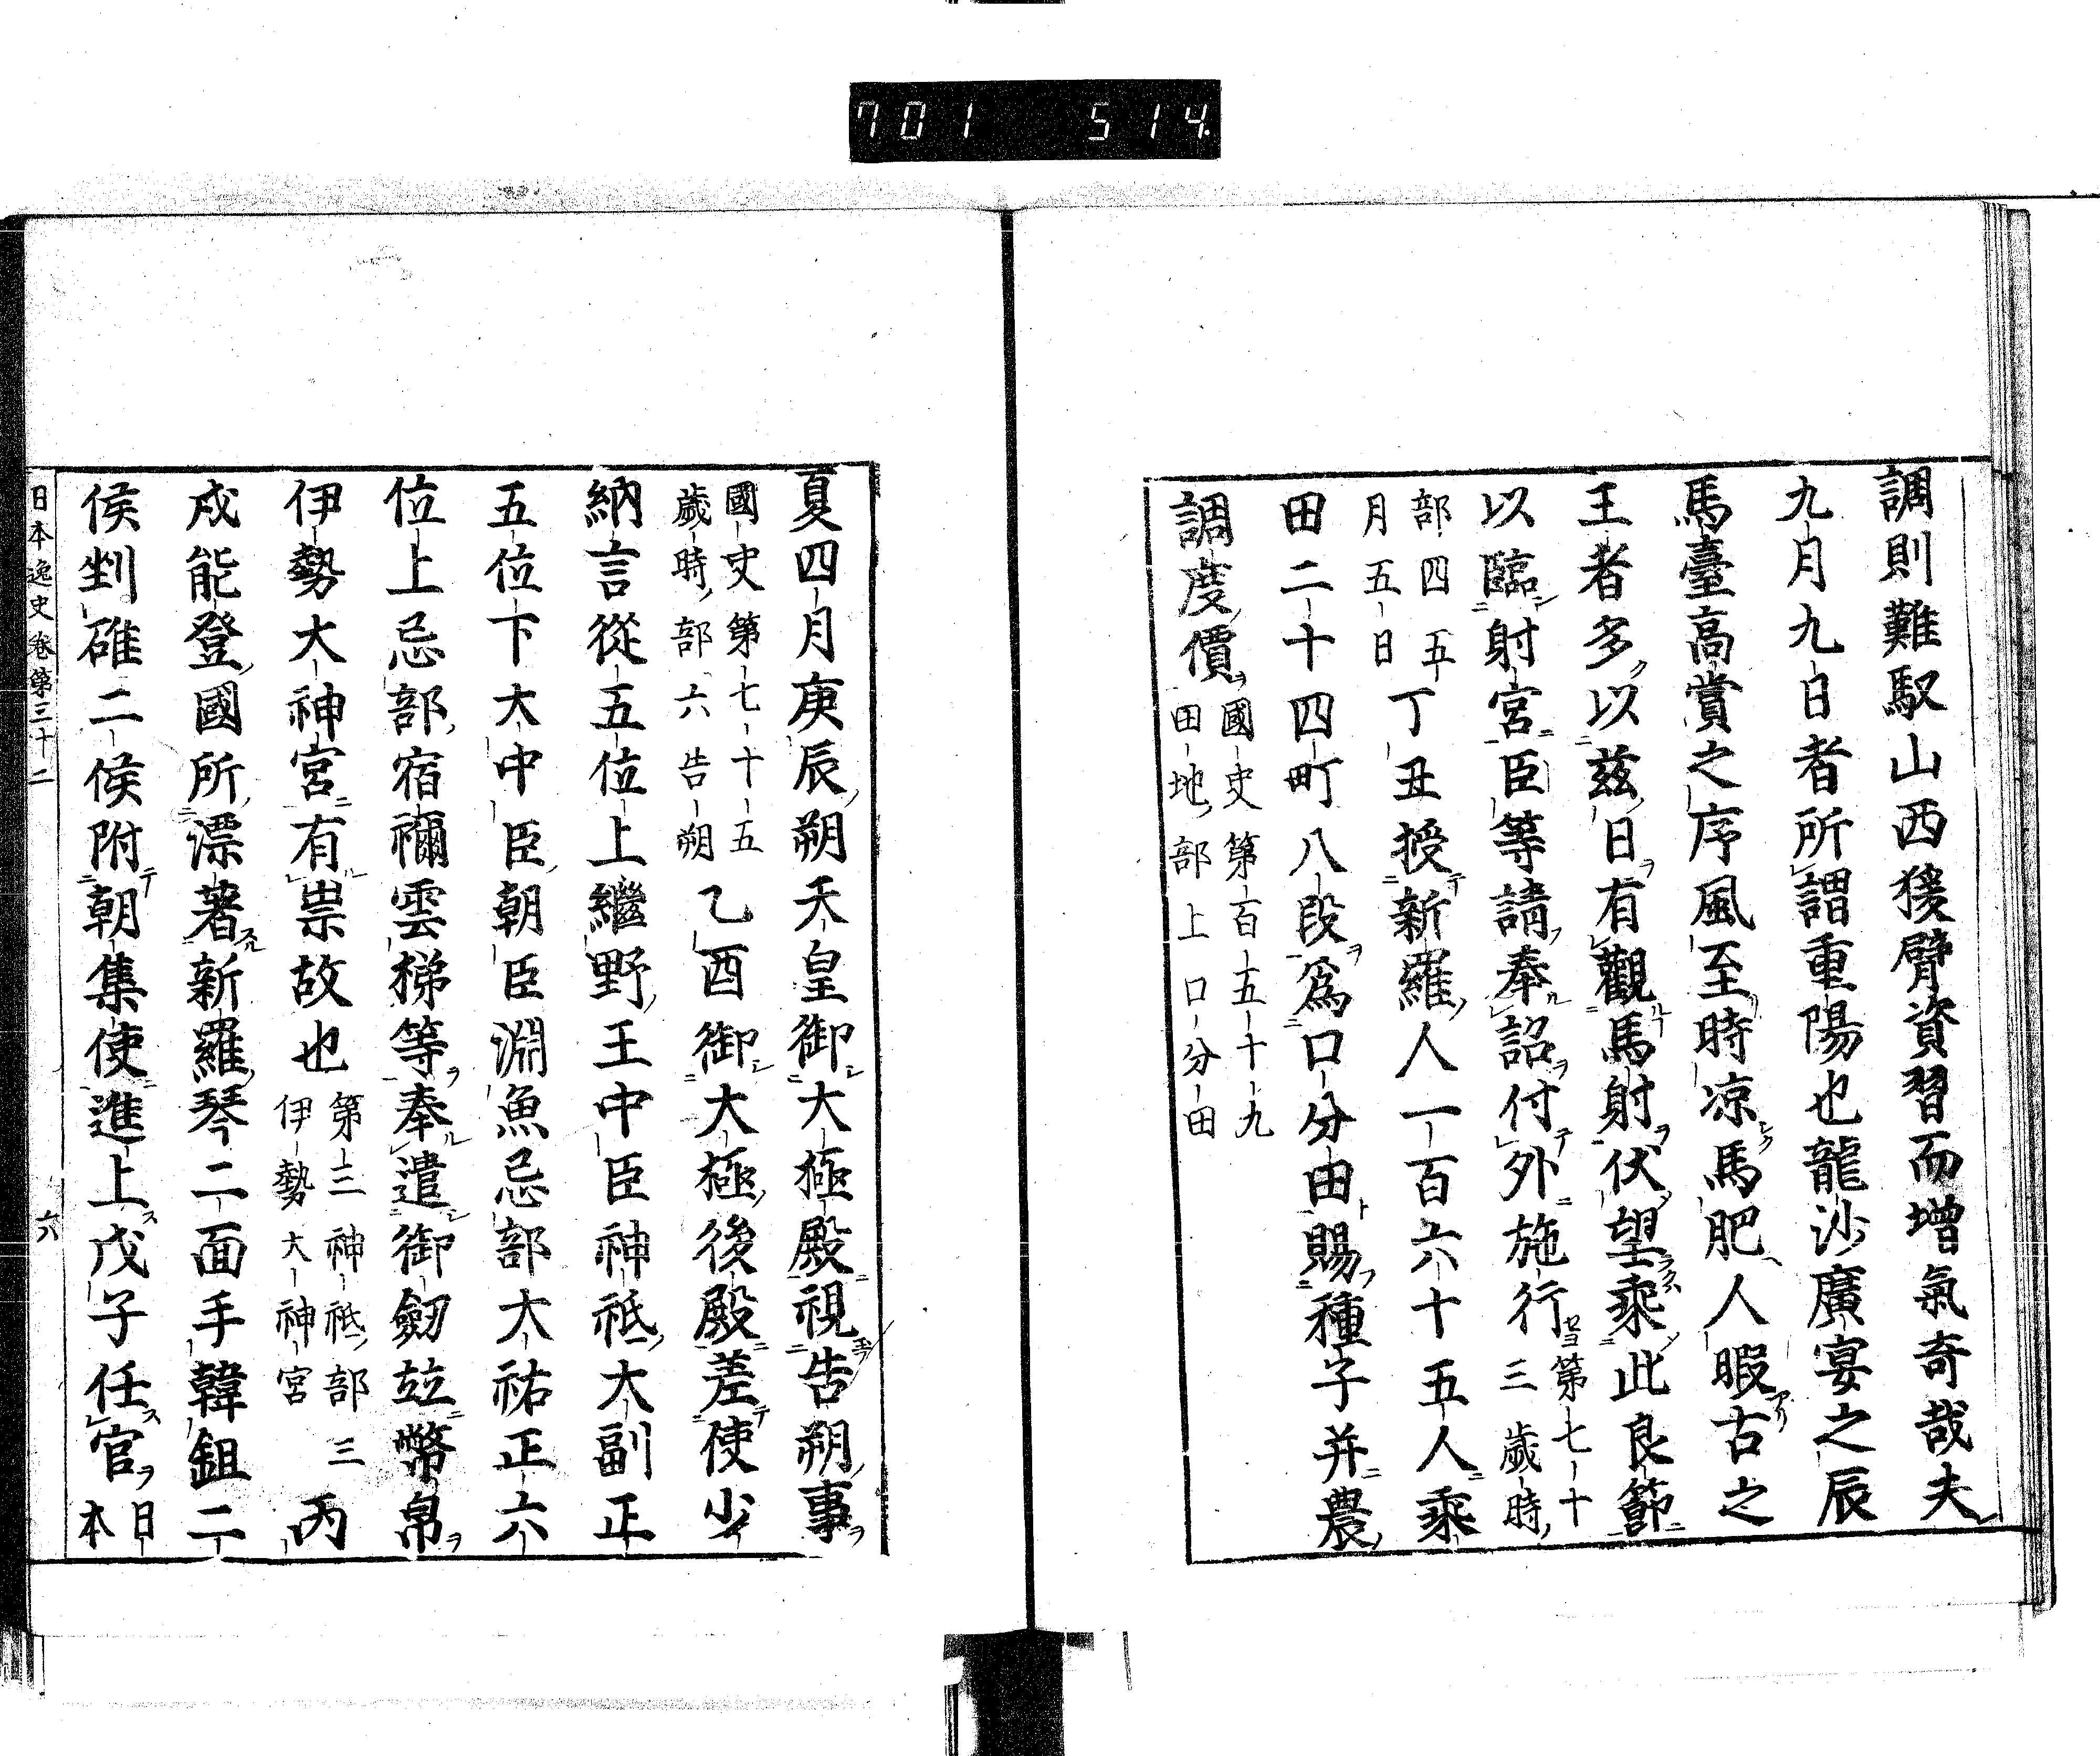 701 514
調則難馭山西猨臂資習而増氣奇哉夫
九月九日者所謂重陽也龍沙廣宴之辰
馬臺高賞之序風至時凉馬肥人暇古之
王者多以茲日有觀馬射伏望乘此良節
以臨射宮臣等請奉詔付外施行第七十
三歲時
部四五
月五日丁丑授新羅人一百六十五人乘
田二十四町八段爲口分田賜種子并農
調度價國史第百五十九
田地部上口分田
夏四月庚辰朔天皇御大極殿視告朔事
國史第七十五
歲時部六告朔乙酉御大極後殿差使少
納言從五位上繼野王中臣神祇大副正
五位下大中臣朝臣淵魚忌部大祐正六
位上忌部宿禰雲梯等奉遣御劒竝幣帛
伊勢大神宮有祟故也第三神祇部三
伊勢大神宮丙
戌能登國所漂著新羅琴二面手韓鉏二
侯剉碓二侯附朝集使進上戊子任官日
本
日本逸史卷第三十二 六